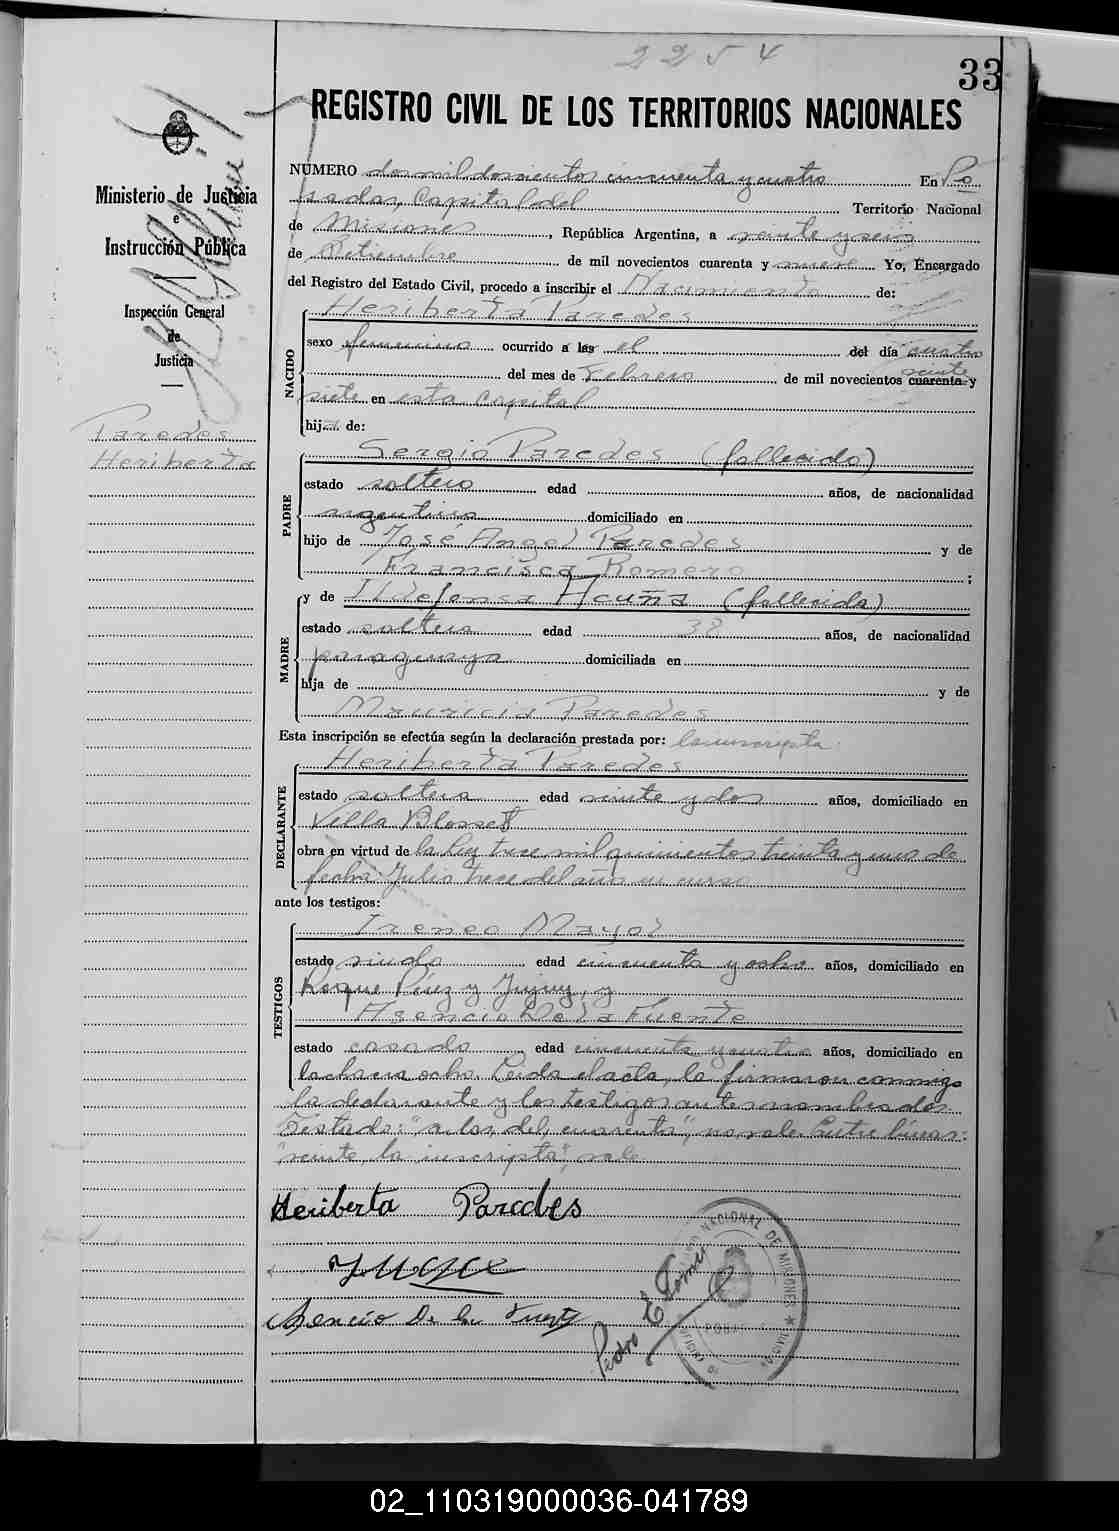 2254
33
REGISTRO CIVIL DE LOS TERRITORIOS NACIONALES
Ministerio de Justicia
e
Instrucción Pública
Inspección General
de
Justicia
Paredes
Heriberta
NUMERO dos mil doscientos cincuenta y cuatro En Po
sadas, Capital del Territorio Nacional
de Misiones, República Argentina, a veinte y seis
de Setiembre de mil novecientos cuarenta y nueve Yo, Encargado
del Registro del Estado Civil, procedo a inscribir el Nacimiento de:
NACIDO
Heriberta Paredes
sexo femenino ocurrido a las el del día cuatro
del mes de Febrero de mil novecientos cuarenta y
veinte
siete en esta Capital
hija de:
PADRE
Sergio Paredes (fallecido)
estado soltero edad años, de nacionalidad
argentino domiciliado en
hijo de José Angel Paredes y de
Francisca Romero;
MADRE
y de Ildefonsa Acuña (fallecida)
estado soltera edad 38 años, de nacionalidad
paraguaya domiciliada en
hija de y de
Mauricia Paredes
Esta inscripción se efectúa según la declaración prestada por: la inscripta
DECLARANTE
Heriberta Paredes
estado soltera edad veinte y dos años, domiciliado en
Villa Blosset
obra en virtud de la Ley trece mil quinientos treinta y uno de
fecha: Julio trece del año en curso
ante los testigos:
TESTIGOS
Ireneo Mayol
estado viudo edad cincuenta y ocho años, domiciliado en
Roque Pérez y Jujuy, y
Asencio De la Fuente
estado casado edad cincuenta y cuatro años, domiciliado en
la chacra ocho. Leida el acta, la firmaron conmigo
la declarante y los testigos antes nombrados.
Testado: "a las, del, cuarenta", no vale. Entre líneas:
"veinte, la inscripta", vale
Heriberta Paredes
Asencio De la Fuente
Pedro E Gomez
NACIONAL DE MISIONES
02_110319000036-041789